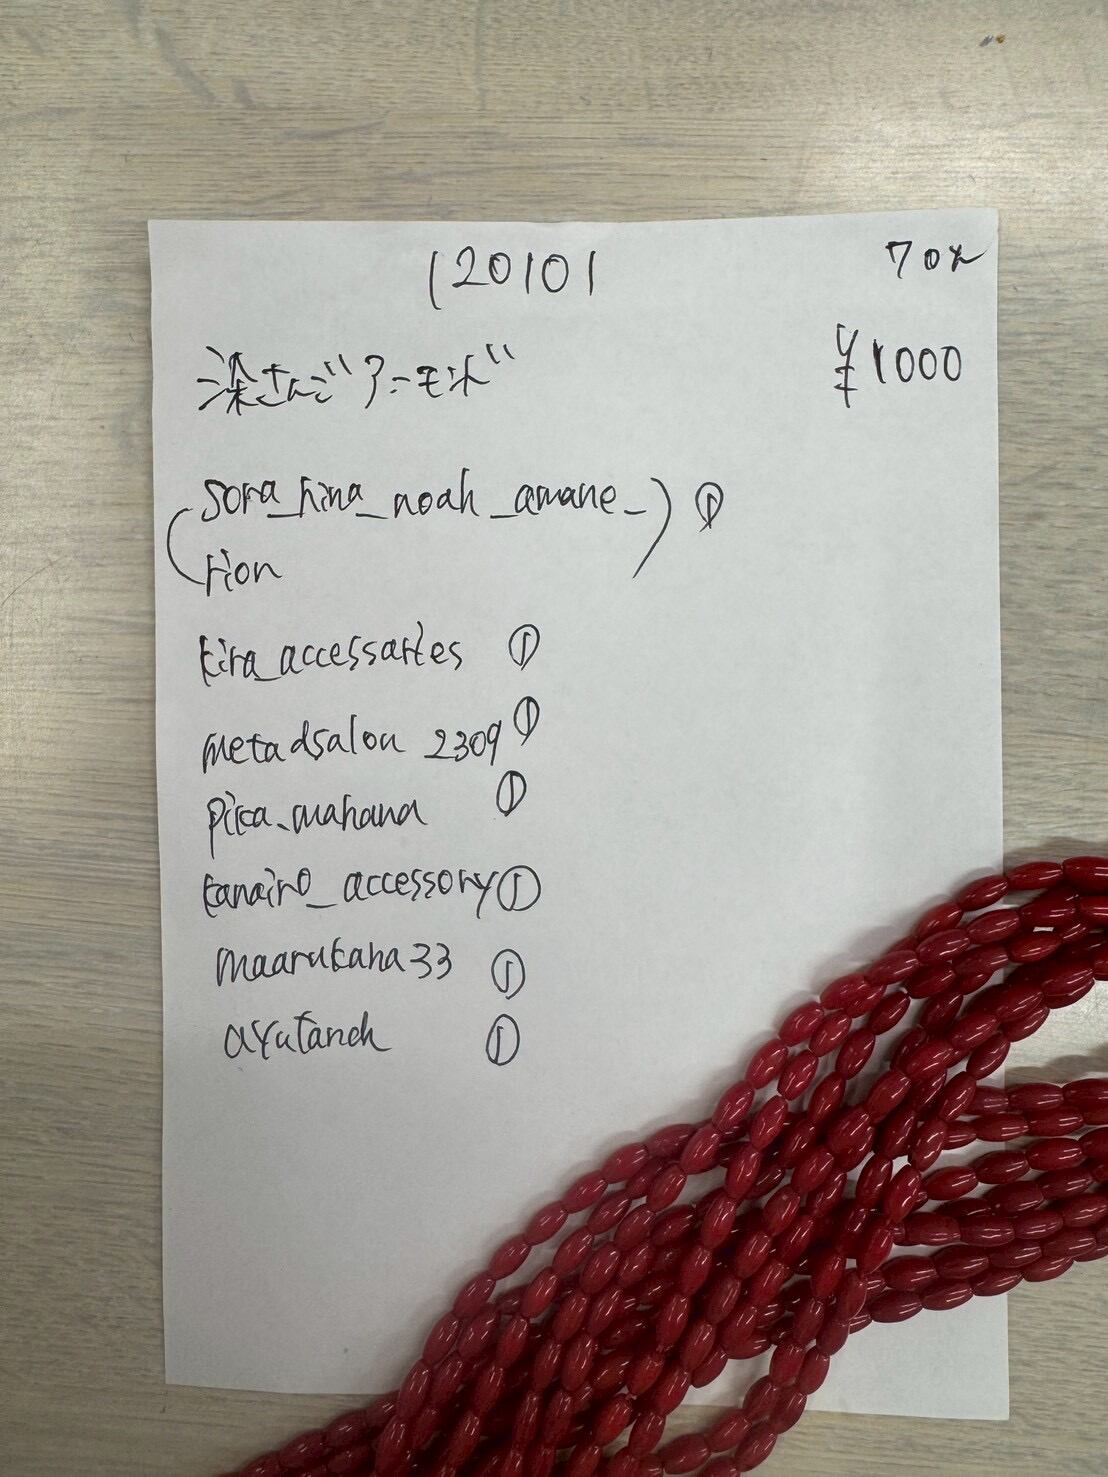 120101
70%
染さんごアーモンド
¥1000
(sora_hina_noah_amane_) ①
rion
kira_accessaries ①
metadsalon 2309 ①
pika_mahana ①
kanairo_accessory ①
maarukaha33 ①
ayutanch ①